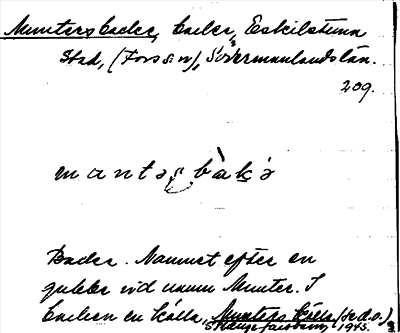 Munters backe, backe, Eskilstuna
Stad, (Fors sn), Södermanlands län.
209.
m a n t ə ʂ b à k ə
Backe. Namnet efter en
gubbe vid namn Munter. I
backen en källa, Munters källa (se d.o.)
1945.